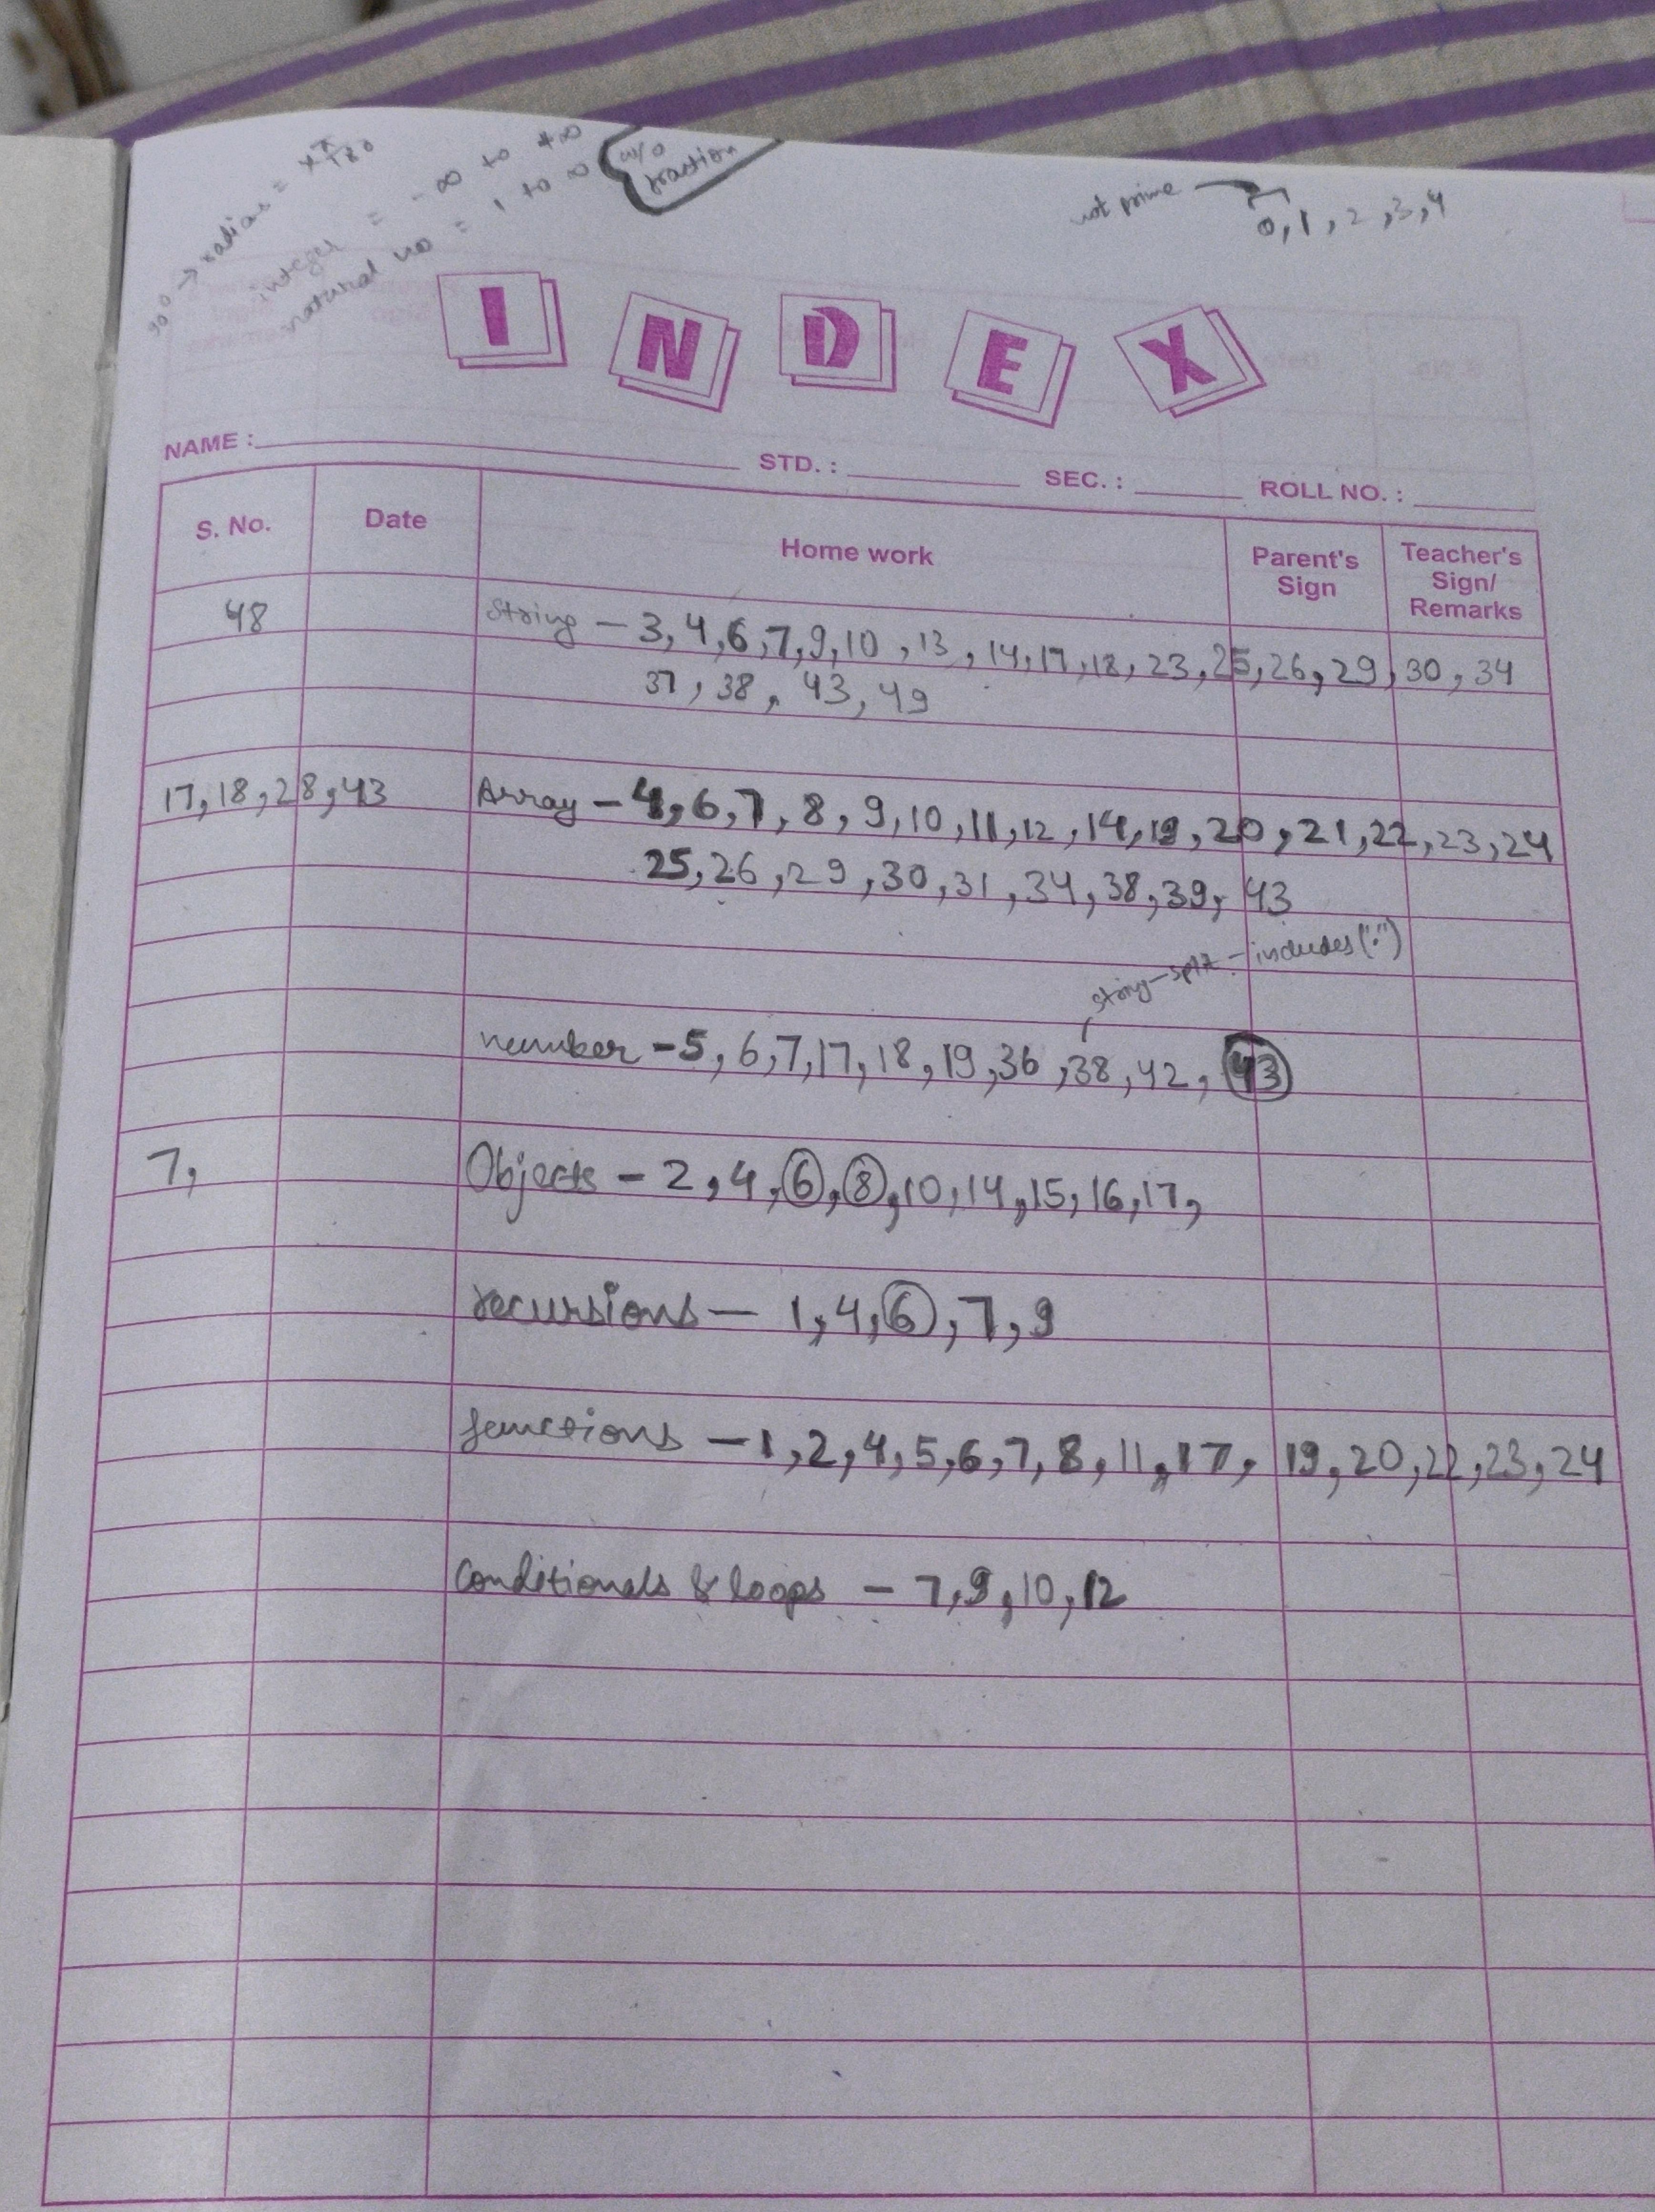 90° → radian = x π/180
integer = -∞ to +∞
natural no = 1 to ∞
w/o
fraction
not prime → 0, 1, 2, 3, 4
INDEX
NAME : STD. : SEC. : ROLL NO. :
S. No. Date Home work Parent's Sign Teacher's Sign/ Remarks
48 String - 3, 4, 6, 7, 9, 10, 13, 14, 17, 18, 23, 25, 26, 29, 30, 34
37, 38, 43, 49
17, 18, 28, 43 Array - 4, 6, 7, 8, 9, 10, 11, 12, 14, 19, 20, 21, 22, 23, 24
25, 26, 29, 30, 31, 34, 38, 39, 43
string - split - includes(".")
number - 5, 6, 7, 17, 18, 19, 36, 38, 42, 43
7, Objects - 2, 4, 6, 8, 10, 14, 15, 16, 17,
recursions - 1, 4, 6, 7, 9
functions - 1, 2, 4, 5, 6, 7, 8, 11, 17, 19, 20, 22, 23, 24
Conditionals & loops - 7, 9, 10, 12